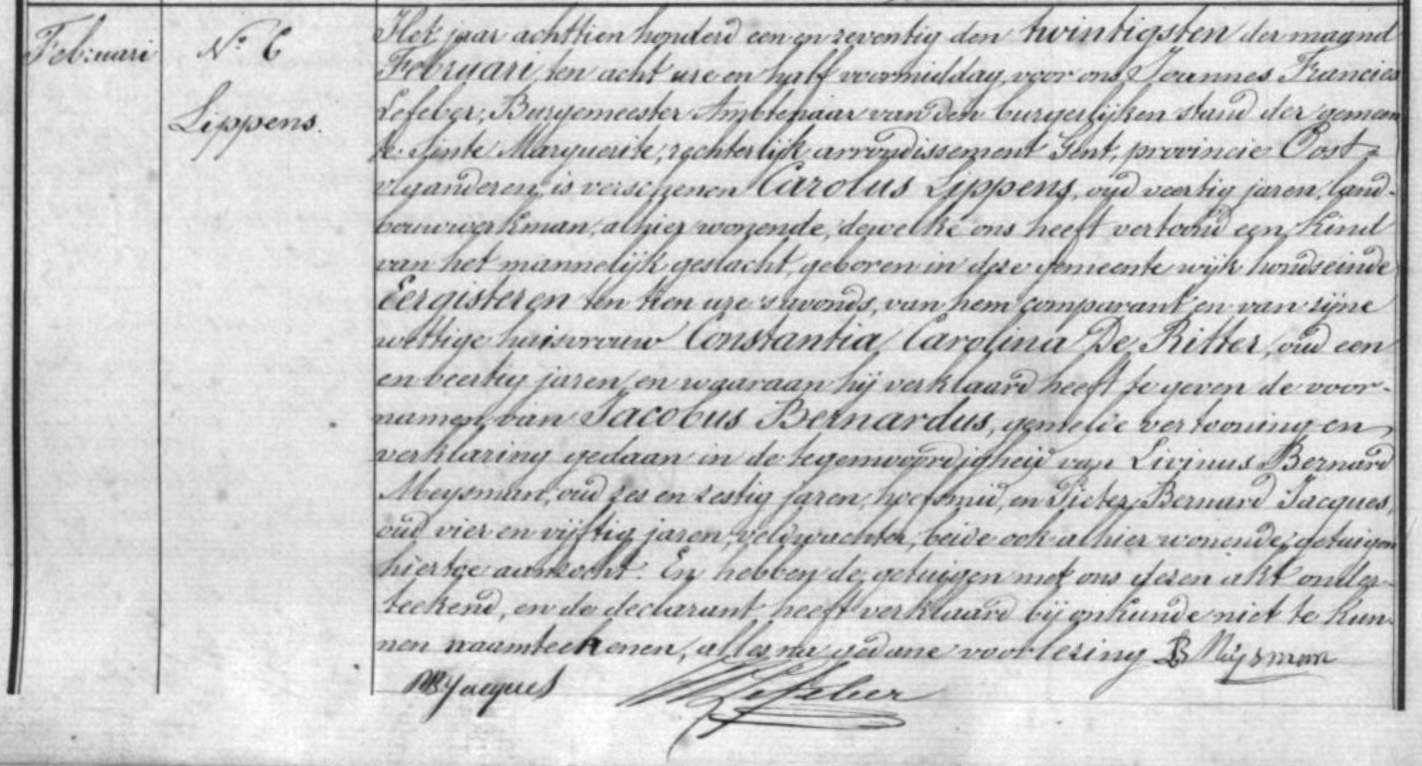 Februari
N.º 6
Lippens.
Het jaar achttien honderd een en zeventig den twintigsten der maand
Februari, ten acht ure en half voormiddag, voor ons Joannes Francies
Lefeber, Burgemeester Ambtenaar van den burgerlijken stand der gemeen
te Sinte Marguerite, rechterlijk arrondissement Gent, provincie Oost-
vlaanderen, is verschenen Carolus Lippens, oud veertig jaren, land-
bouwwerkman, alhier wonende, dewelke ons heeft vertoond een kind
van het mannelijk geslacht, geboren in deze gemeente wijk hondseinde
Eergisteren ten tien ure 's avonds, van hem comparant en van zijne
wettige huisvrouw Constantia Carolina De Ritter, oud een
en veertig jaren, en waaraan hij verklaard heeft te geven de voor-
namen van Jacobus Bernardus, gemelde vertooning en
verklaring gedaan in de tegenwoordigheid van Livinus Bernard
Meysman, oud zes en zestig jaren, hoefsmid, en Pieter Bernard Jacques,
oud vier en vijftig jaren, veldwachter, beide ook alhier wonende, getuigen
hiertoe aanzocht. En hebben de getuigen met ons dezen akt onder-
teekend, en de declarant heeft verklaard bij onkunde niet te kun-
nen naamteekenen, alles na gedane voorlezing LB Meysman
PB Jacques Lefeber